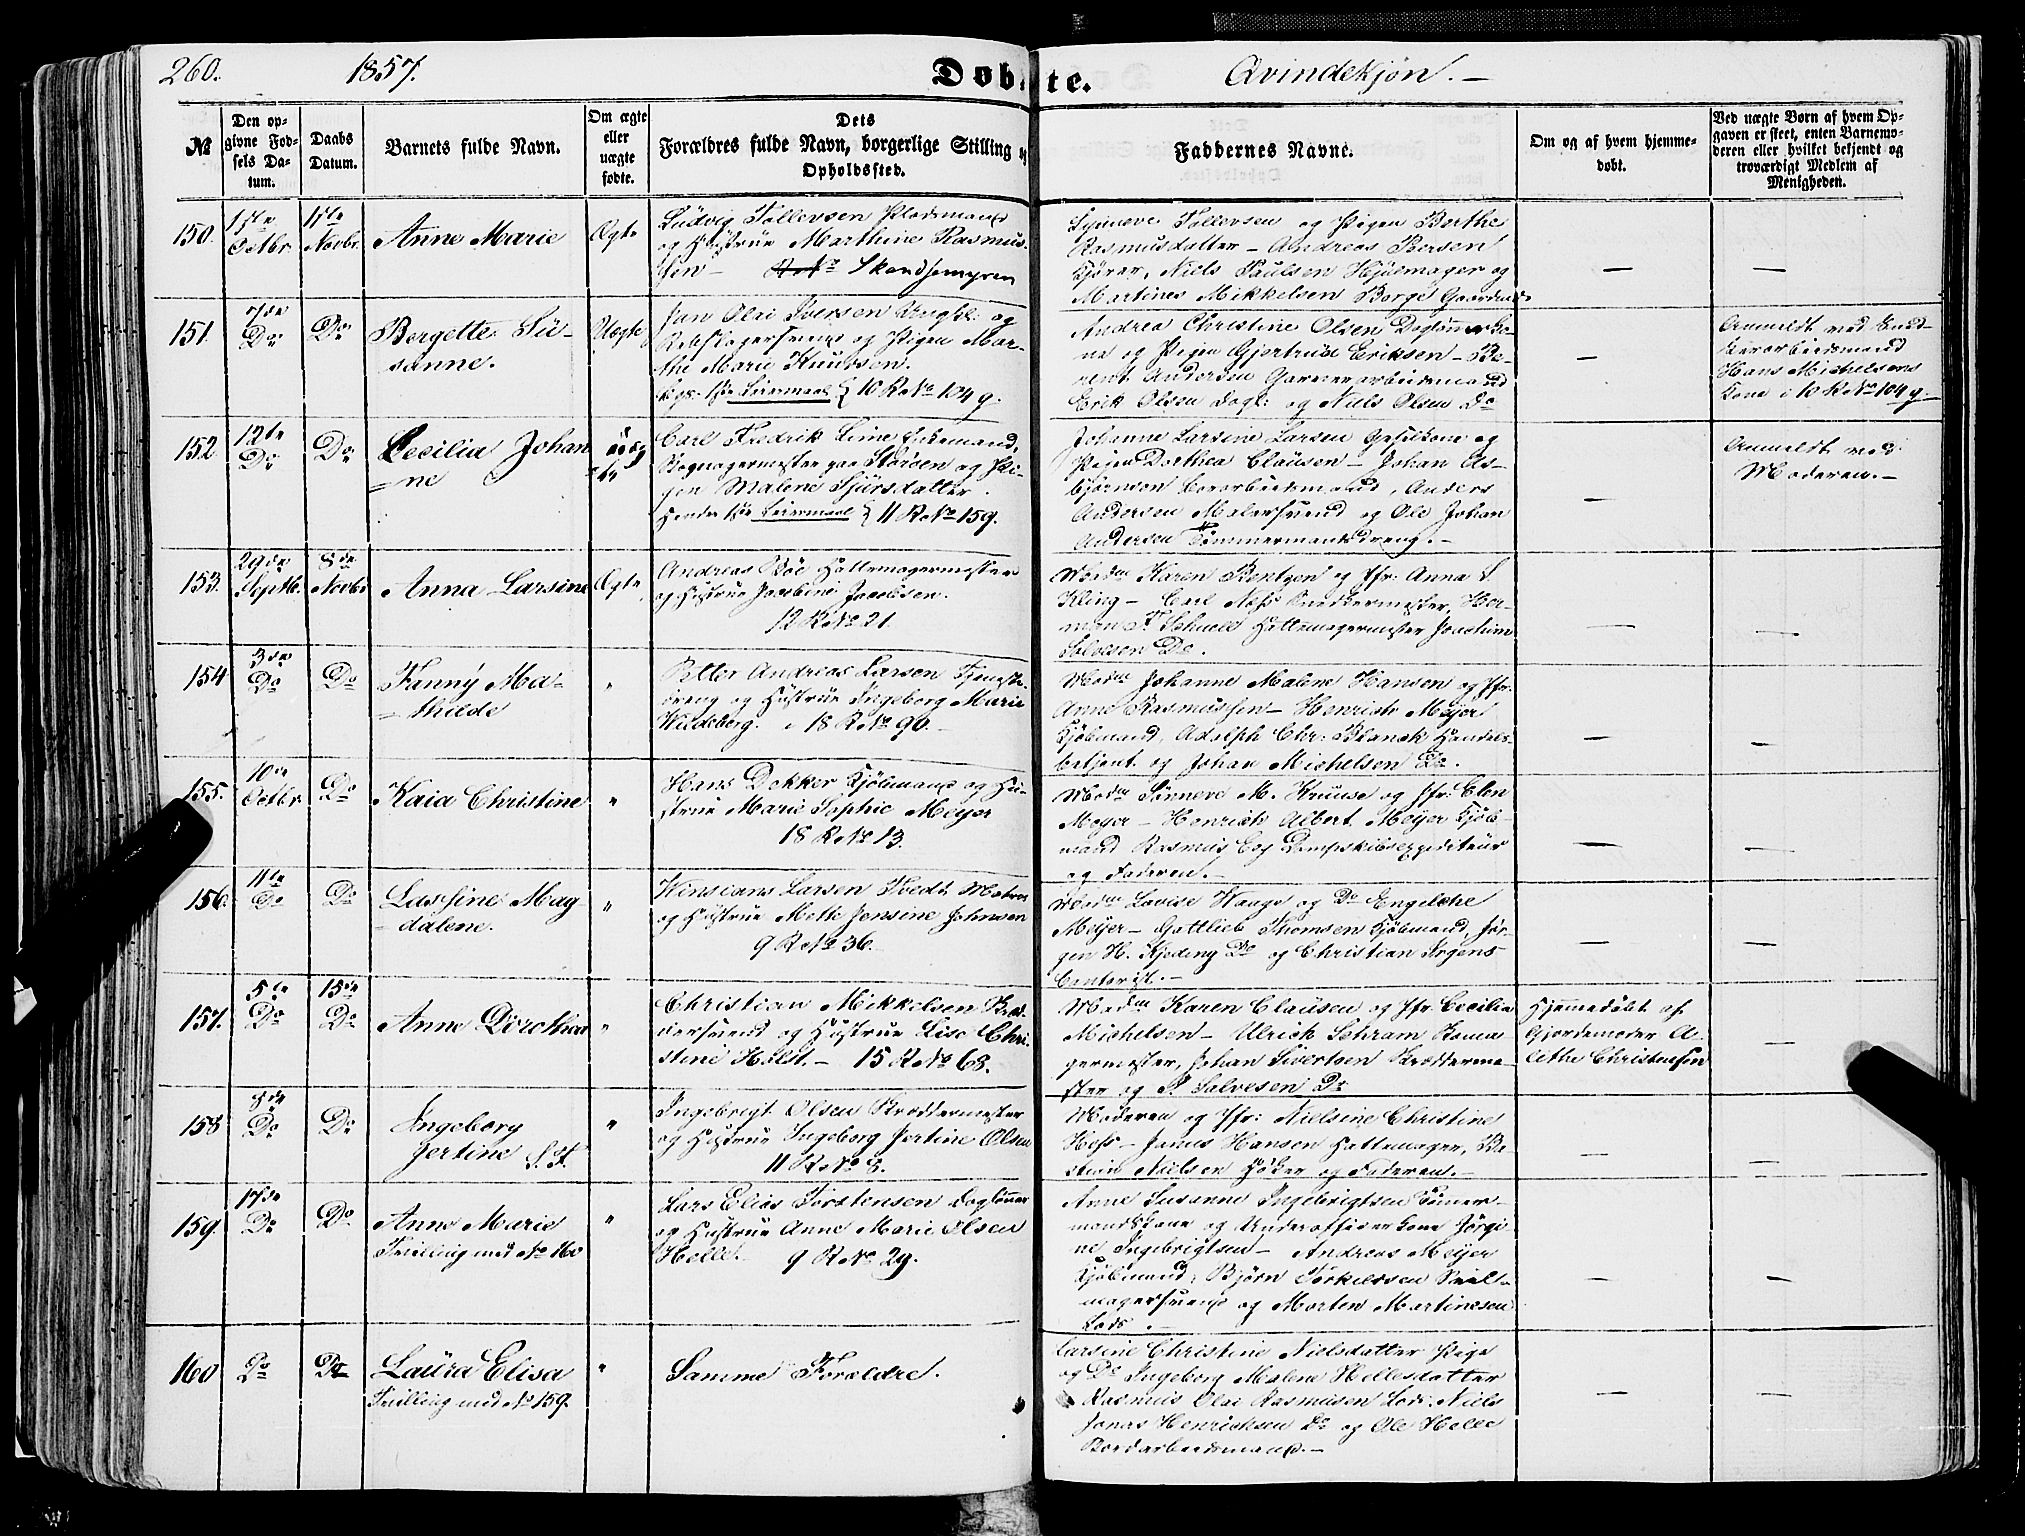 260.
1857.
Døbte.
Qvindekjøn. —
No
Den op-
givne Fød-
sels Da-
tum.
Daabs
Datum.
Barnets fulde Navn.
Om ægte
eller
uægte
fødte.
Dets
Forældres fulde Navn, borgerlige Stilling
Opholdssted.
Faddernes Navne.
Om og af hvem hjemme-
døbt.
Ved uægte Børn af hvem Op-
gaven er skeet, enten Barnemo-
deren eller hvilket bekjendt og
troværdigt Medlem af
Menigheden.
150.
1ste
Octbr
1ste
Novbr.
Anne Marie
Ægte
Ludvig Tollevsen Pladsmand
og Hustrue Marthine Rasmus-
sen — Skandsemyren
Synneve Tollevsen og Pigen Berthe
Rasmusdatter — Andreas Persen
Kjører, Niels Paulsen Hjulmager og
Martines Mikkelsen Borge Gaardmd
—
—
151.
7de
Do
Do
Bergette Su-
sanne.
Uægte
Jan Olai Iversen Ungkl. og
Rebslagersvend og Pigen Mar-
the Marie Knudsen.
begs 1ste Leiermaal 10 R No 104 g.
Andrea Christine Olsen Dagløn
ne og Pigen Gjertrud Eriksen — Be-
rent Andersen Garverarbeidsmand
Erik Olsen Dagl: og Niels Olsen Do
—
Anmeldt ved
Hans Michelsens
Kone i 10 R No 104 g.
152
12te
Do
Do
Cecilia Johan
ne
uæg
te
Carl Fredrik Lime Enkemand,
Vognmagermester paa Storøen og Pi-
gen Malene Sjursdatter.
Hendes 1ste Leiermaal 11 R No 159.
Johanne Larsine Larsen og
Pigen Dorthea Clausen — Johan As-
bjørnsen Arbeidsmand, Anders
Andersen Malersvend og Ole Johan
Andersen Tømmermandsdreng. —
—
Anmeldt ved
Moderen. —
153.
29de
Septb.
8de
Novbr
Anna Larsine
Ægte
Andreas Bøe Hattemagermester
og Hustrue Jacobine Jacobsen.
12 R No 21.
Madm Karen Bentzen og Jfr: Anna S.
Kling — Carl Næss Snedkermester, Her-
man F. Schnell Hattemagermester Joachim
Salvesen Do.
—
—
154
3die
Do
Do
Fanny Ma-
thilde
"
Petter Andreas Larsen Tjeneste-
dreng og Hustrue Ingeborg Marie
Wildeberg. i 18 R No 90.
Madm Johanne Malene Hansen og Jfr.
Anne Rasmussen — Henrich Meyer
Kjøbmand, Adolph Chr: Blanck Handels-
betjent og Johan Michelsen Do.
—
—
155.
10de
Octbr
Do
Kaia Christine
"
Hans Dekker Kjøbmand og Hu-
strue Marie Sophie Meyer
18 R No 13.
Madm Sønneve M. Kruuse og Jfr: Elen
Meyer — Henrich Albert Meyer Kjøb-
mand Rasmus Dampskibsexpediteur
og Faderen. —
—
—
156.
11te
Do
Do
Lassine Mag-
dalene.
"
Larsen Tvedt
og Hustrue Mette Jensine Johnsen
9 R No 36.
Madm Lovise Hauge og Do Engelche
Meyer — Gottlieb Thomsen Kjøbmand, Jør-
gen H. Kjeding Do og Christian Irgens
Contorist. —
—
—
157.
5te
Do
15de
Do
Anne Dorothea
"
Christian Mikkelsen
svend og Hustrue Lise Chri-
stine Hille. — 15 R No 68.
Madm Karen Clausen og Jfr Cecilia
Michelsen — Ulrich Schram
germester, Johan Sivertsen Skrædderme-
ster og P. Salvesen Do
Hjemmedøbt af
Gjordemoder A-
lethe Christensen
—
158
8de
Do
Do
Ingeborg
Jertine
"
Ingebrigt Olsen Skræddermester
og Hustrue Ingeborg Jertine Olsen
11 R No 8.
Moderen og Jfr: Nielsine Christine
Hess — James Hansen Hattemager, Ba-
stian Nielsen Høker og Faderen. —
—
—
159.
17de
Do
Do
Anne Marie
Tvilling med No 160
"
Lars Elias Torstensen Daglønner
og Hustrue Anne Marie Olsen
Helle. 9 R No 29.
Anne Susanne Ingebrigtsen Tømmer-
mandskone og Underofficerkone Jørgi-
ne Ingebrigtsen — Andreas Meyer
Kjøbmand, Bjørn Torkildsen Seil-
magersvend og Morten Martinesen
Lods. —
—
—
160
Do
Do
Laura Elisa
Tvilling med No 159.
"
Samme Forældre.
Larsine Christine Nielsdatter Pige
og Do Ingeborg Malene Hellesdatter
Rasmus Olai Rasmusen Lods, Niels
Jonas Henriksen Do og Ole Helle
Bordarbeidsmand. —
—
—